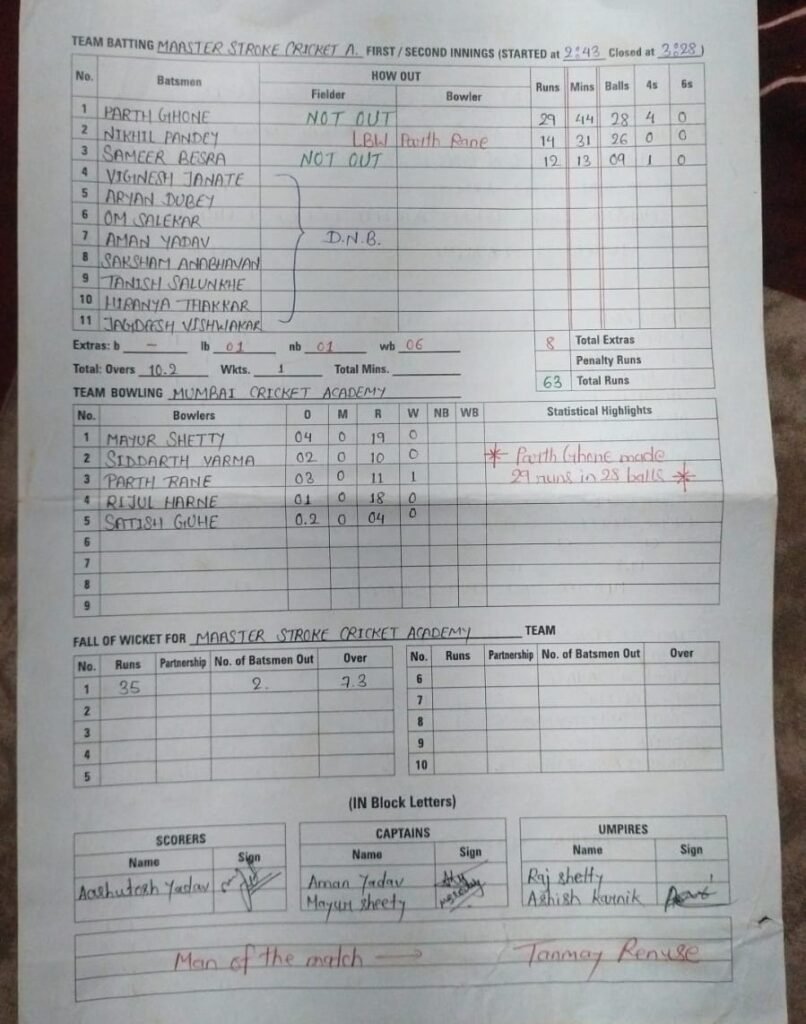 TEAM BATTING MAASTER STROKE CRICKET A. FIRST / SECOND INNINGS (STARTED at 2:43 Closed at 3:28)
No. Batsmen HOW OUT Runs Mins Balls 4s 6s
Fielder Bowler
1 PARTH GHONE NOT OUT 29 44 28 4 0
2 NIKHIL PANDEY LBW Parth Rane 14 31 26 0 0
3 SAMEER BESRA NOT OUT 12 13 09 1 0
4 VIGINESH JANATE
5 ARYAN DUBEY
6 OM SALEKAR
7 AMAN YADAV D.N.B.
8 SAKSHAM ANABHAVAN
9 TANISH SALUNKHE
10 HIRANYA THAKKAR
11 JAGDAESH VISHWAKAR
Extras: b - lb 01 nb 01 wb 06 8 Total Extras
Penalty Runs
Total: Overs 10.2 Wkts. 1 Total Mins. 63 Total Runs
TEAM BOWLING MUMBAI CRICKET ACADEMY
No. Bowlers O M R W NB WB Statistical Highlights
1 MAYUR SHETTY 04 0 19 0
2 SIDDARTH VARMA 02 0 10 0 * Parth Ghone made
3 PARTH RANE 03 0 11 1 29 runs in 28 balls *
4 RIJUL HARNE 01 0 18 0
5 SATISH GUHE 0.2 0 04 0
6
7
8
9
FALL OF WICKET FOR MAASTER STROKE CRICKET ACADEMY TEAM
No. Runs Partnership No. of Batsmen Out Over No. Runs Partnership No. of Batsmen Out Over
1 35 2. 7.3 6
2 7
3 8
4 9
5 10
(IN Block Letters)
SCORERS CAPTAINS UMPIRES
Name Sign Name Sign Name Sign
Aashutosh Yadav Aman Yadav Raj shetty
Mayur sheety Ashish Karnik
Man of the match → Tanmay Renuse